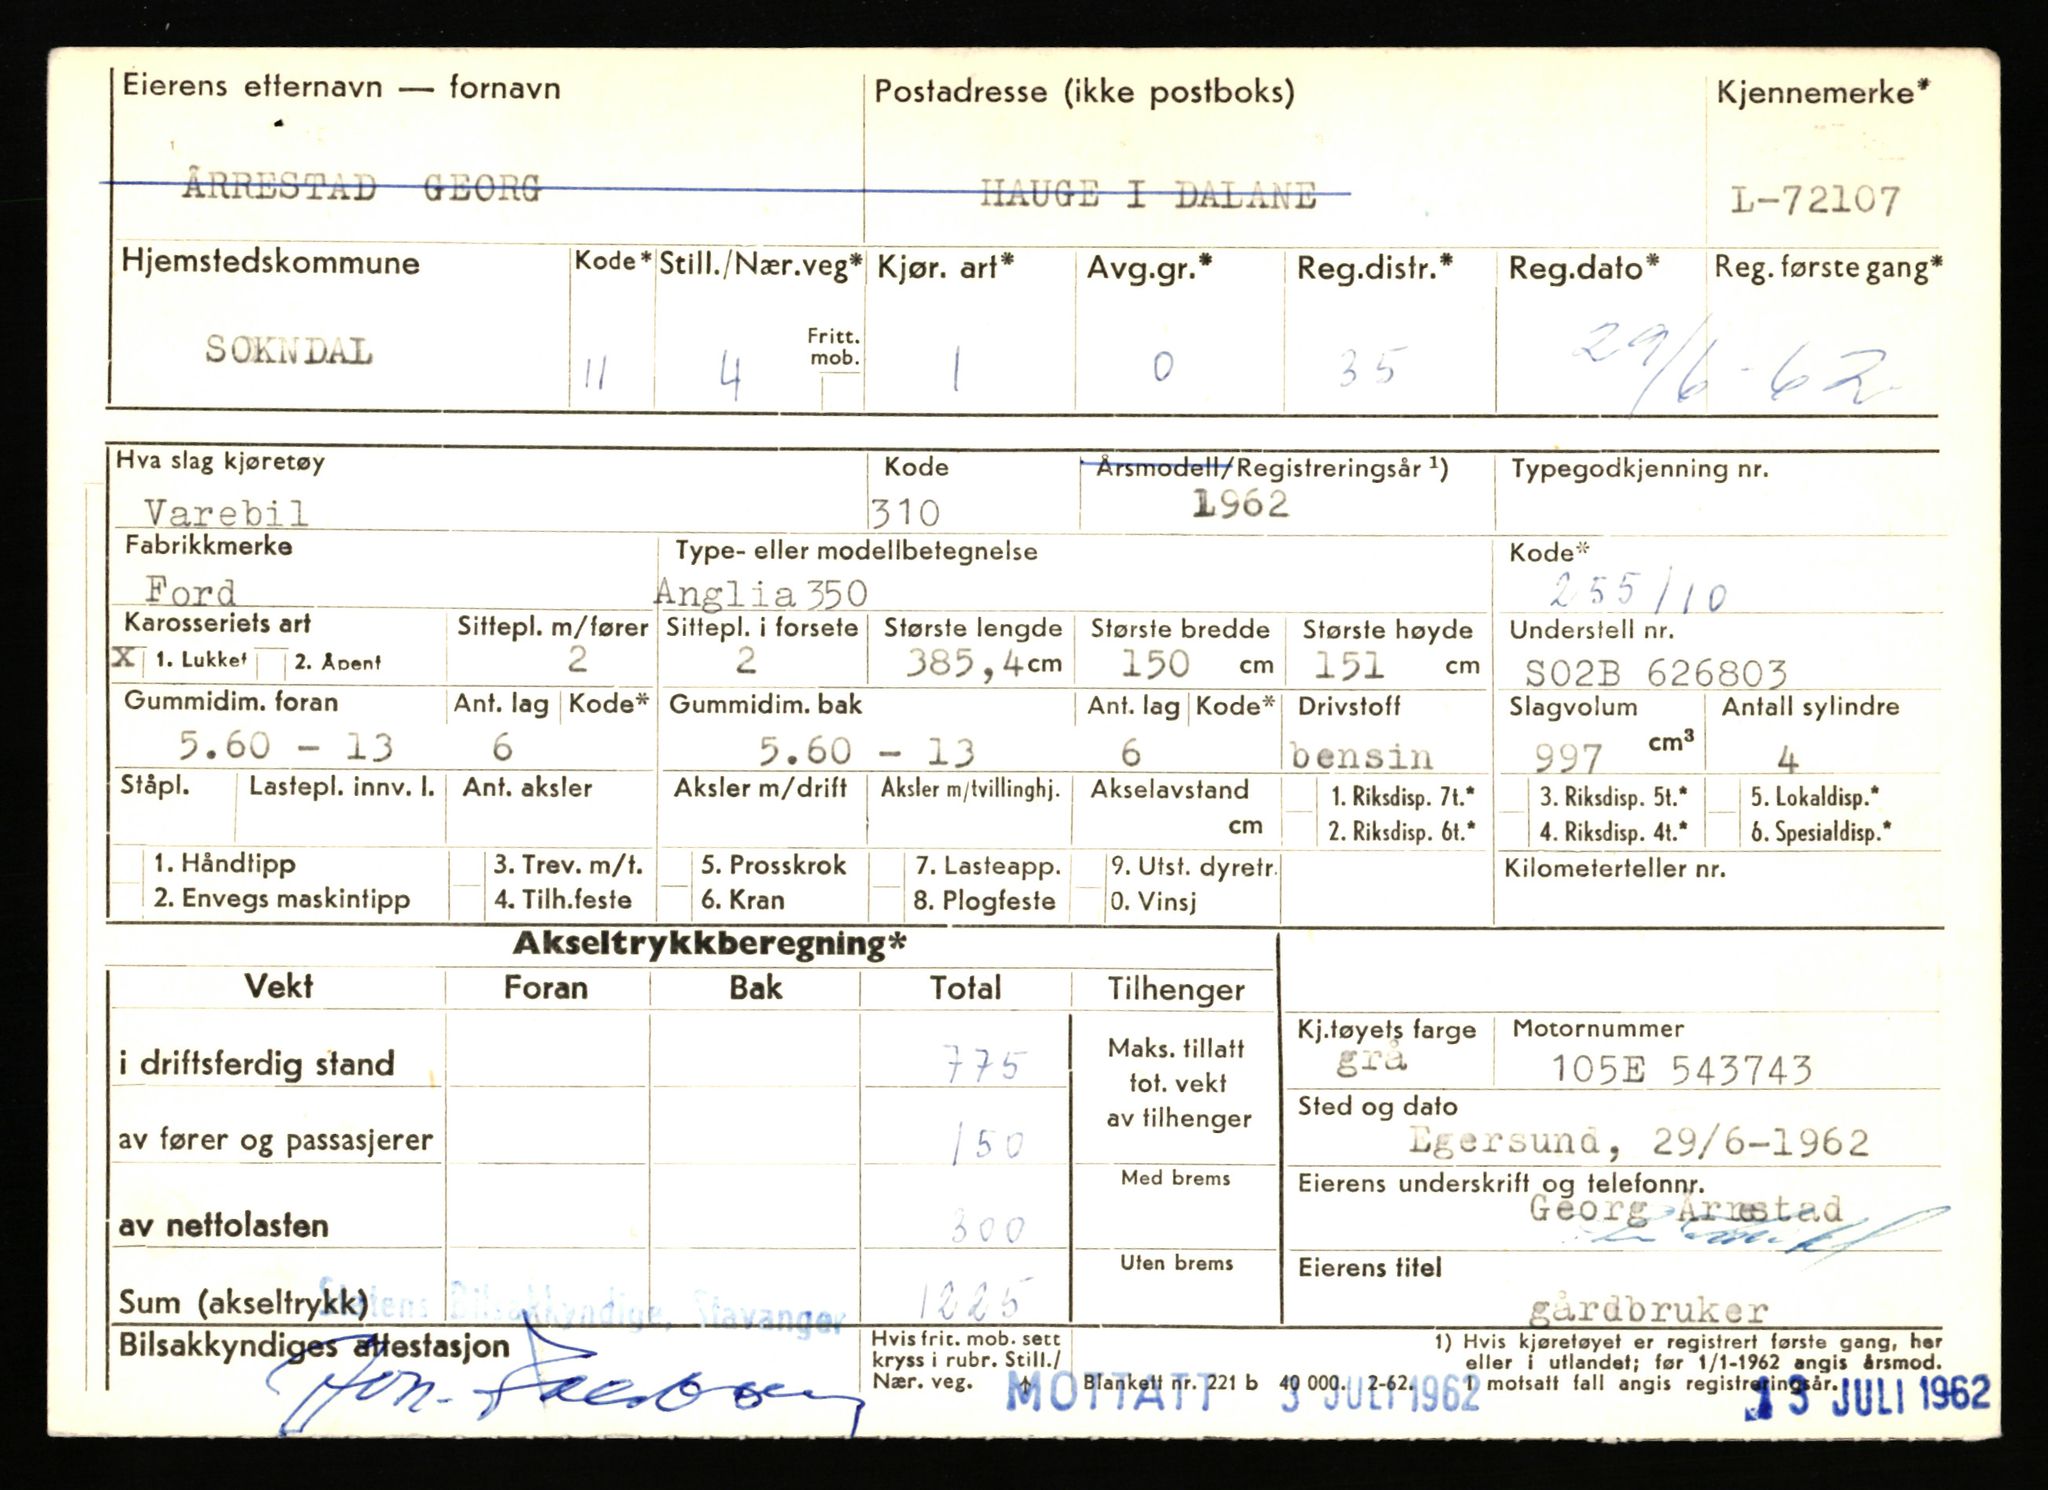 Eierens etternavn — fornavn Postadresse (ikke postboks) Kjennemerke*
ÅRRESTAD GEORG HAUGE I DALANE L-72107
Hjemstedskommune Kode* Still./Nær.veg* Kjør. art* Avg.gr.* Reg.distr.* Reg.dato* Reg. første gang*
Fritt.
mob.
SOKNDAL 11 4 1 0 35 29/6-62
Hva slag kjøretøy Kode Årsmodell/Registreringsår ¹) Typegodkjenning nr.
Varebil 310 1962
Fabrikkmerke Type- eller modellbetegnelse Kode*
Ford Anglia 350 255/10
Karosseriets art Sittepl. m/fører Sittepl. i forsete Største lengde Største bredde Største høyde Understell nr.
X 1. Lukket 2. Åpent 2 2 385,4 cm 150 cm 151 cm S02B 626803
Gummidim. foran Ant. lag Kode* Gummidim. bak Ant. lag Kode* Drivstoff Slagvolum Antall sylindre
5.60 - 13 6 5.60 - 13 6 bensin 997 cm³ 4
Ståpl. Lastepl. innv. l. Ant. aksler Aksler m/drift Aksler m/tvillinghj. Akselavstand 1. Riksdisp. 7t.* 3. Riksdisp. 5t.* 5. Lokaldisp.*
cm 2. Riksdisp. 6t.* 4. Riksdisp. 4t.* 6. Spesialdisp.*
1. Håndtipp 3. Trev. m/t. 5. Prosskrok 7. Lasteapp. 9. Utst. dyretr. Kilometerteller nr.
2. Envegs maskintipp 4. Tilh.feste 6. Kran 8. Plogfeste 0. Vinsj
Akseltrykkberegning*
Vekt Foran Bak Total Tilhenger
i driftsferdig stand 775
Maks. tillatt
tot. vekt
av tilhenger
Kj.tøyets farge Motornummer
grå 105E 543743
Sted og dato
av fører og passasjerer 150
Egersund, 29/6-1962
Med brems
Eierens underskrift og telefonnr.
Georg Årrestad
av nettolasten 300
Uten brems
Eierens titel
gårdbruker
Sum (akseltrykk) 1225
Statens Bilsakkyndige, Stavanger
Bilsakkyndiges attestasjon
Hvis frit. mob. sett
kryss i rubr. Still./
Nær. veg.
1) Hvis kjøretøyet er registrert første gang, her
eller i utlandet; før 1/1-1962 angis årsmod.
I motsatt fall angis registreringsår.
Blankett nr. 221 b 40 000. 2-62.
MOTTATT 3 JULI 1962
13 JULI 1962